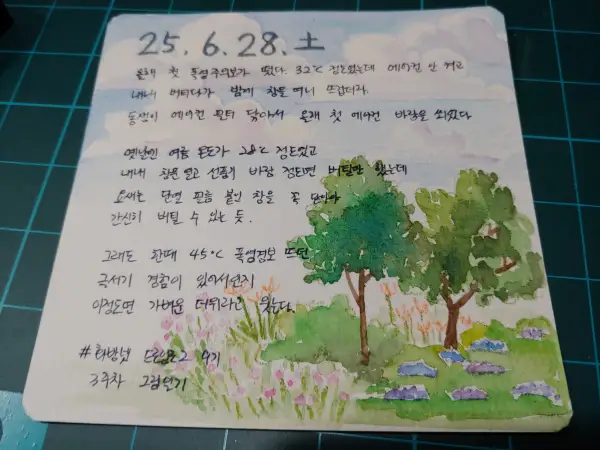 25. 6. 28. 土
올해 첫 폭염주의보가 떴다. 32℃ 정도였는데 에어컨 안 켜고
내내 버티다가 밤에 창을 여니 뜨겁더라.
동생이 에어컨 필터 닦아서 올해 첫 에어컨 바람을 쐬었다
옛날엔 여름 온도가 28℃ 정도였고
내내 창문 열고 선풍기 바람 정도면 버틸만 했는데
요새는 단열 필름 붙인 창을 꼭 닫아야
간신히 버틸 수 있는 듯.
그래도 한때 45℃ 폭염경보 뜨던
극서기 경험이 있어서인지
이정도면 가벼운 더위라고 웃는다.
#화방넷 9기
3주차 그림일기